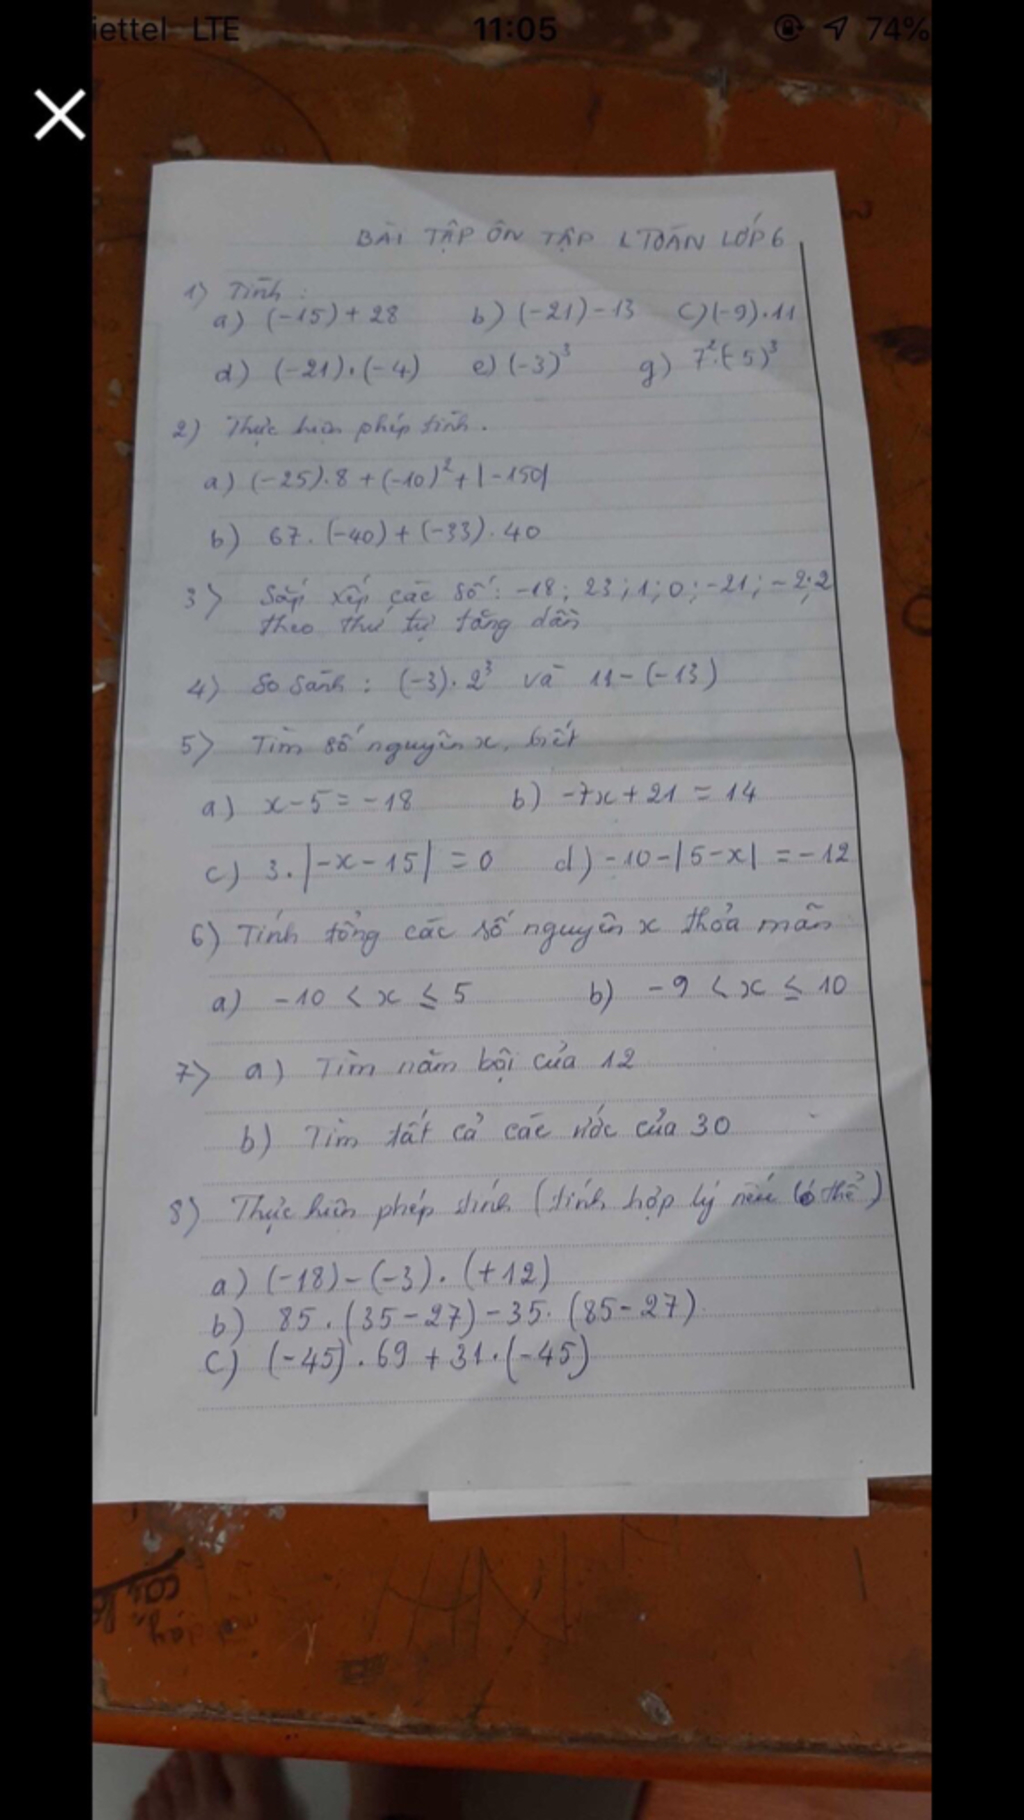 iettel LTE 11:05 74%
BÀI TẬP ÔN TẬP TOÁN LỚP 6
1) Tính :
a) (-15) + 28 b) (-21) - 13 c) (-9) . 11
d) (-21) . (-4) e) (-3)³ g) 7² . (-5)³
2) Thực hiện phép tính .
a) (-25) . 8 + (-10)² + |-150|
b) 67 . (-40) + (-33) . 40
3) Sắp xếp các số : -18 ; 23 ; 1 ; 0 ; -21 ; -2 ; 2
theo thứ tự tăng dần
4) So sánh : (-3) . 2³ và 11 - (-13)
5) Tìm số nguyên x, biết
a) x - 5 = -18 b) -7x + 21 = 14
c) 3 . |-x - 15| = 0 d) -10 - |5 - x| = -12
6) Tính tổng các số nguyên x thỏa mãn
a) -10 < x ≤ 5 b) -9 < x ≤ 10
7) a) Tìm năm bội của 12
b) Tìm tất cả các ước của 30
8) Thực hiện phép tính (tính hợp lý nếu có thể)
a) (-18) - (-3) . (+12)
b) 85 . (35 - 27) - 35 . (85 - 27)
c) (-45) . 69 + 31 . (-45)